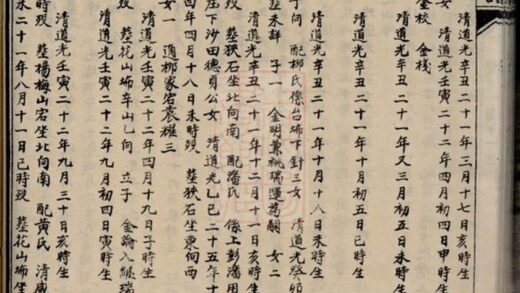 清道光辛丑二十一年三月十七日亥時生
清道光壬寅二十二年四月初四日申時生
金校 金棧
清道光辛丑二十一年又三月初五日未時生
清道光辛丑二十一年十月初五日巳時生
清道光辛丑二十一年十月十八日未時生
子向 配柳氏像台埔下針三女 清道光癸卯
葬未詳 子一 金明兼祧瑞運為嗣 女二
清道光辛丑二十一年十二月十一日亥時生
時歿 葬狹石坐北向南 配潘氏 像上彭潘用
庄下沙田德貞公女 清道光乙巳二十五年十
年四月十八日未時歿 葬狹石坐東向西
女一 適柳家宕袁耀三
清道光壬寅二十二年四月十九日子時生
葬花山埔辛山乙向 立子 金論入繼瑞
清道光壬寅二十二年九月初四日寅時生
清道光壬寅二十二年九月三十日亥時生
時歿 葬楊梅山宕坐北向南 配黃氏 清咸
二十一年八月十一日巳時歿 葬花山埔坐